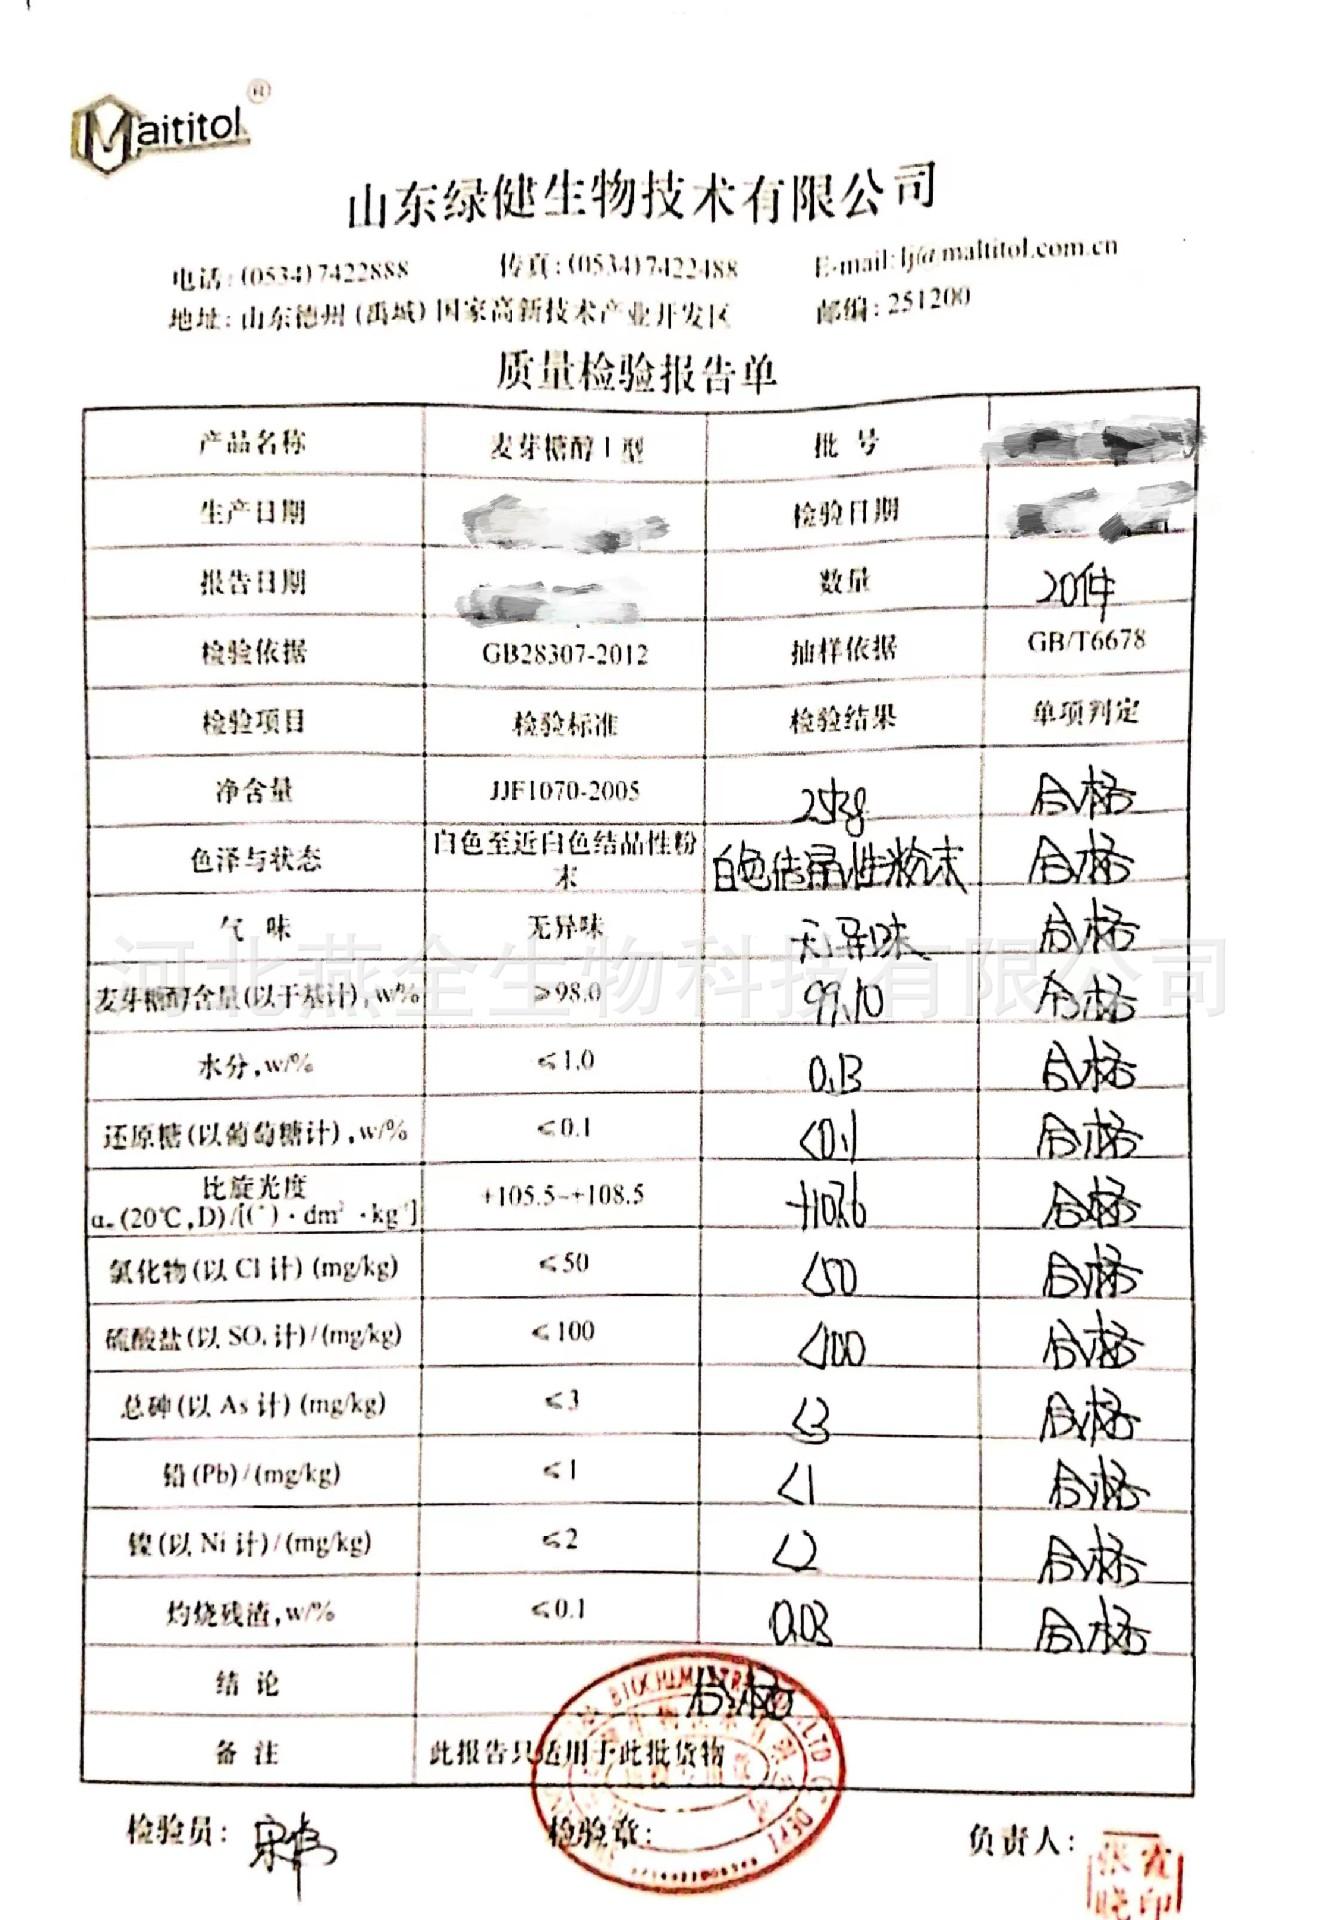 Maititol ®
山东绿健生物技术有限公司
电话:(0534)7422888 传真:(0534)7422488 E-mail:lj@maltitol.com.cn
地址:山东德州(禹城)国家高新技术产业开发区 邮编:251200
质量检验报告单
产品名称 麦芽糖醇Ⅰ型 批 号
生产日期 检验日期
报告日期 数量 20件
检验依据 GB28307-2012 抽样依据 GB/T6678
检验项目 检验标准 检验结果 单项判定
净含量 JJF1070-2005 25kg 合格
色泽与状态 白色至近白色结晶性粉末 白色结晶性粉末 合格
气 味 无异味 无异味 合格
河北燕全生物科技有限公司
麦芽糖醇含量(以干基计),w/% ≥98.0 99.10 合格
水分,w/% ≤1.0 0.13 合格
还原糖(以葡萄糖计),w/% ≤0.1 <0.1 合格
比旋光度
αm(20℃,D)/[(°)·dm²·kg⁻¹] +105.5~+108.5 +107.6 合格
氯化物(以 Cl 计)(mg/kg) ≤50 <50 合格
硫酸盐(以 SO₄计)/(mg/kg) ≤100 <100 合格
总砷(以 As 计)(mg/kg) ≤3 <3 合格
铅(Pb)/(mg/kg) ≤1 <1 合格
镍(以 Ni 计)/(mg/kg) ≤2 <2 合格
灼烧残渣,w/% ≤0.1 0.03 合格
结 论 合格
备 注 此报告只适用于此批货物
检验员: 检验章: 负责人: